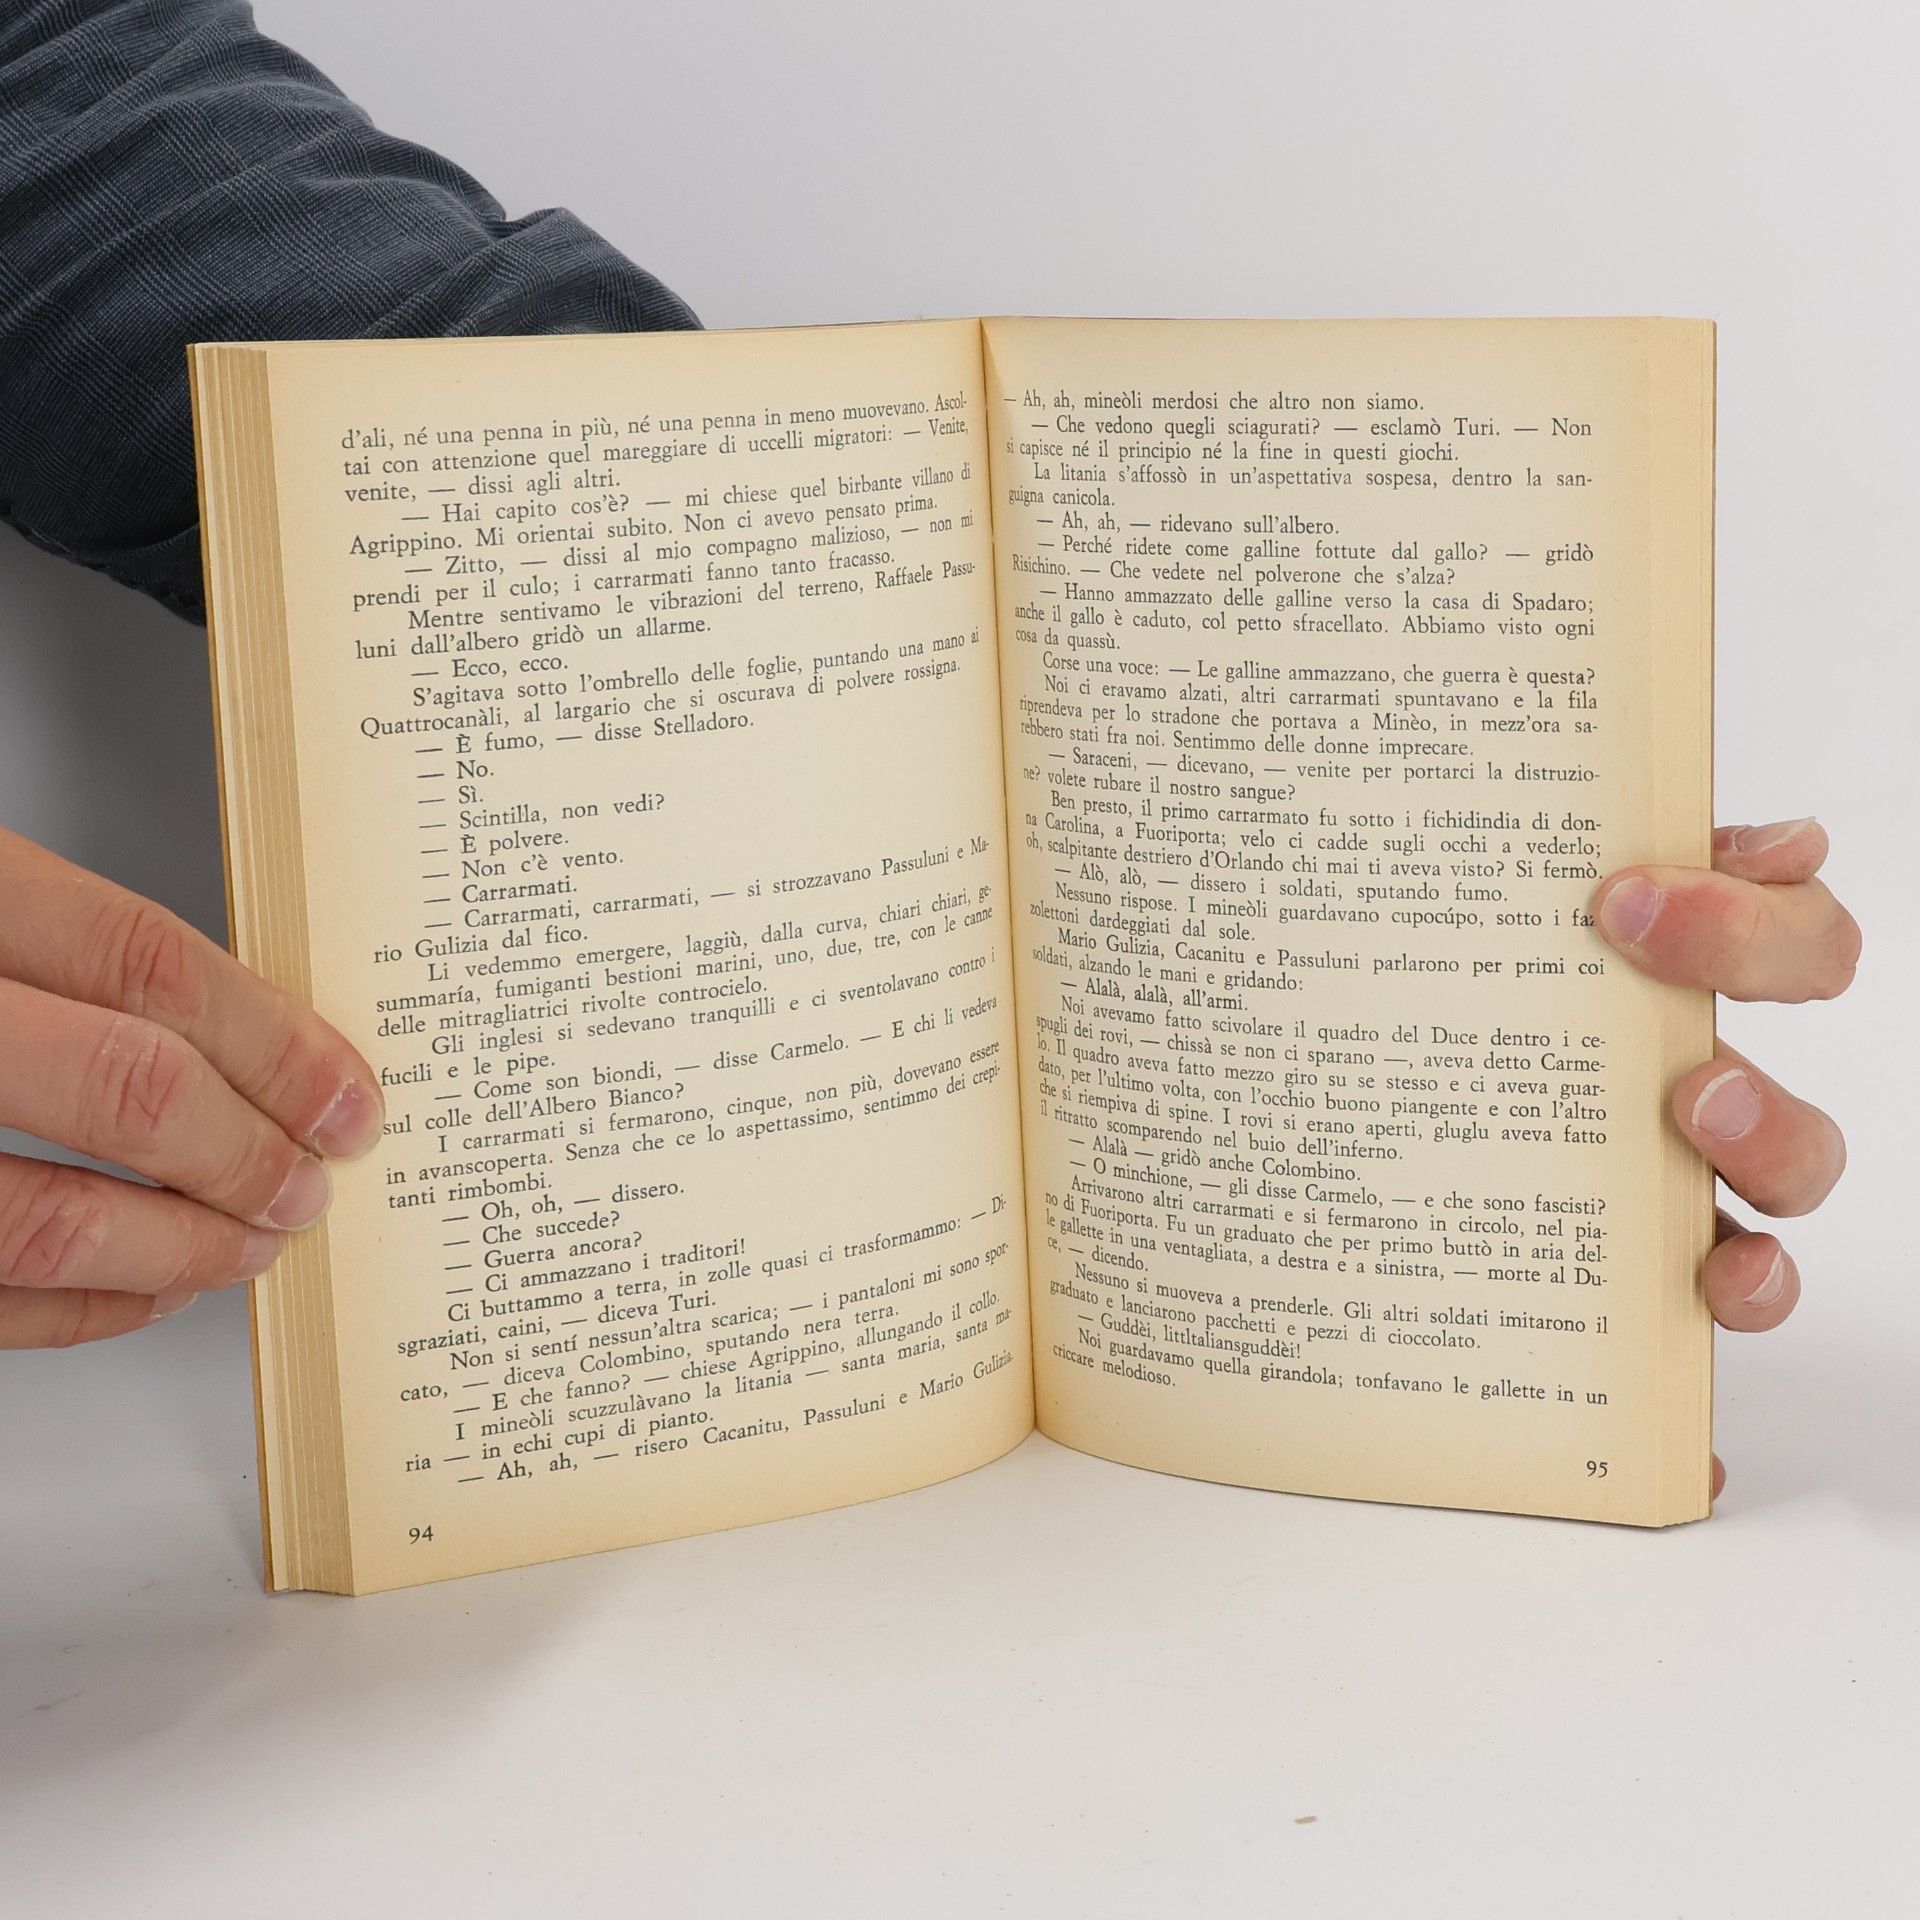 d'ali, né una penna in più, né una penna in meno muovevano. Ascol-
tai con attenzione quel mareggiare di uccelli migratori: — Venite,
venite, — dissi agli altri.
— Hai capito cos'è? — mi chiese quel birbante villano di
Agrippino. Mi orientai subito. Non ci avevo pensato prima.
— Zitto, — dissi al mio compagno malizioso, — non mi
prendi per il culo; i carrarmati fanno tanto fracasso.
Mentre sentivamo le vibrazioni del terreno, Raffaele Passu-
luni dall'albero gridò un allarme.
— Ecco, ecco.
S'agitava sotto l'ombrello delle foglie, puntando una mano ai
Quattrocanàli, al largario che si oscurava di polvere rossigna.
— È fumo, — disse Stelladoro.
— No.
— Sì.
— Scintilla, non vedi?
— È polvere.
— Non c'è vento.
— Carrarmati.
— Carrarmati, carrarmati, — si strozzavano Passuluni e Ma-
rio Gulizia dal fico.
Li vedemmo emergere, laggiù, dalla curva, chiari chiari, ge-
summaría, fumiganti bestioni marini, uno, due, tre, con le canne
delle mitragliatrici rivolte controcielo.
Gli inglesi si sedevano tranquilli e ci sventolavano contro i
fucili e le pipe.
— Come son biondi, — disse Carmelo. — E chi li vedeva
sul colle dell'Albero Bianco?
I carrarmati si fermarono, cinque, non più, dovevano essere
in avanscoperta. Senza che ce lo aspettassimo, sentimmo dei crepi-
tanti rimbombi.
— Oh, oh, — dissero.
— Che succede?
— Guerra ancora?
— Ci ammazzano i traditori!
Ci buttammo a terra, in zolle quasi ci trasformammo: — Di-
sgraziati, caini, — diceva Turi.
Non si sentí nessun'altra scarica; — i pantaloni mi sono spor-
cato, — diceva Colombino, sputando nera terra.
— E che fanno? — chiese Agrippino, allungando il collo.
I mineòli scuzzulàvano la litania — santa maria, santa ma-
ria — in echi cupi di pianto.
— Ah, ah, — risero Cacanitu, Passuluni e Mario Gulizia.
94
— Ah, ah, mineòli merdosi che altro non siamo.
— Che vedono quegli sciagurati? — esclamò Turi. — Non
si capisce né il principio né la fine in questi giochi.
La litania s'affossò in un'aspettativa sospesa, dentro la san-
guigna canicola.
— Ah, ah, — ridevano sull'albero.
— Perché ridete come galline fottute dal gallo? — gridò
Risichino. — Che vedete nel polverone che s'alza?
— Hanno ammazzato delle galline verso la casa di Spadaro;
anche il gallo è caduto, col petto sfracellato. Abbiamo visto ogni
cosa da quassù.
Corse una voce: — Le galline ammazzano, che guerra è questa?
Noi ci eravamo alzati, altri carrarmati spuntavano e la fila
riprendeva per lo stradone che portava a Minèo, in mezz'ora sa-
rebbero stati fra noi. Sentimmo delle donne imprecare.
— Saraceni, — dicevano, — venite per portarci la distruzio-
ne? volete rubare il nostro sangue?
Ben presto, il primo carrarmato fu sotto i fichidindia di don-
na Carolina, a Fuoriporta; velo ci cadde sugli occhi a vederlo;
oh, scalpitante destriero d'Orlando chi mai ti aveva visto? Si fermò.
— Alò, alò, — dissero i soldati, sputando fumo.
Nessuno rispose. I mineòli guardavano cupocúpo, sotto i faz-
zolettoni dardeggiati dal sole.
Mario Gulizia, Cacanitu e Passuluni parlarono per primi coi
soldati, alzando le mani e gridando:
— Alalà, alalà, all'armi.
Noi avevamo fatto scivolare il quadro del Duce dentro i ce-
spugli dei rovi, — chissà se non ci sparano —, aveva detto Carme-
lo. Il quadro aveva fatto mezzo giro su se stesso e ci aveva guar-
dato, per l'ultimo volta, con l'occhio buono piangente e con l'altro
che si riempiva di spine. I rovi si erano aperti, gluglu aveva fatto
il ritratto scomparendo nel buio dell'inferno.
— Alalà — gridò anche Colombino.
— O minchione, — gli disse Carmelo, — e che sono fascisti?
Arrivarono altri carrarmati e si fermarono in circolo, nel pia-
no di Fuoriporta. Fu un graduato che per primo buttò in aria del-
le gallette in una ventagliata, a destra e a sinistra, — morte al Du-
ce, — dicendo.
Nessuno si muoveva a prenderle. Gli altri soldati imitarono il
graduato e lanciarono pacchetti e pezzi di cioccolato.
— Guddèi, littltaliansguddèi!
Noi guardavamo quella girandola; tonfavano le gallette in un
criccare melodioso.
95